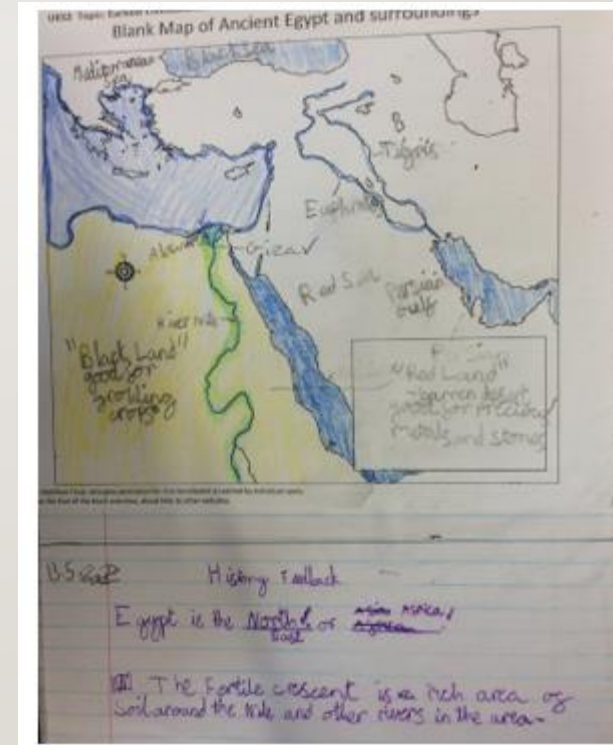 Blank Map of Ancient Egypt and surroundings
Black Sea
Mediterranean
Sea
Tigris
Euphrates
Giza
Red Sea
Persian
Gulf
River Nile
"Black Land"
good for
growing
crops
"Red Land"
- barren desert
good for precious
metals and stones
History Feedback
Egypt is the North
East
of
Africa
The Fertile crescent is a rich area of
Soil around the Nile and other rivers in the area.